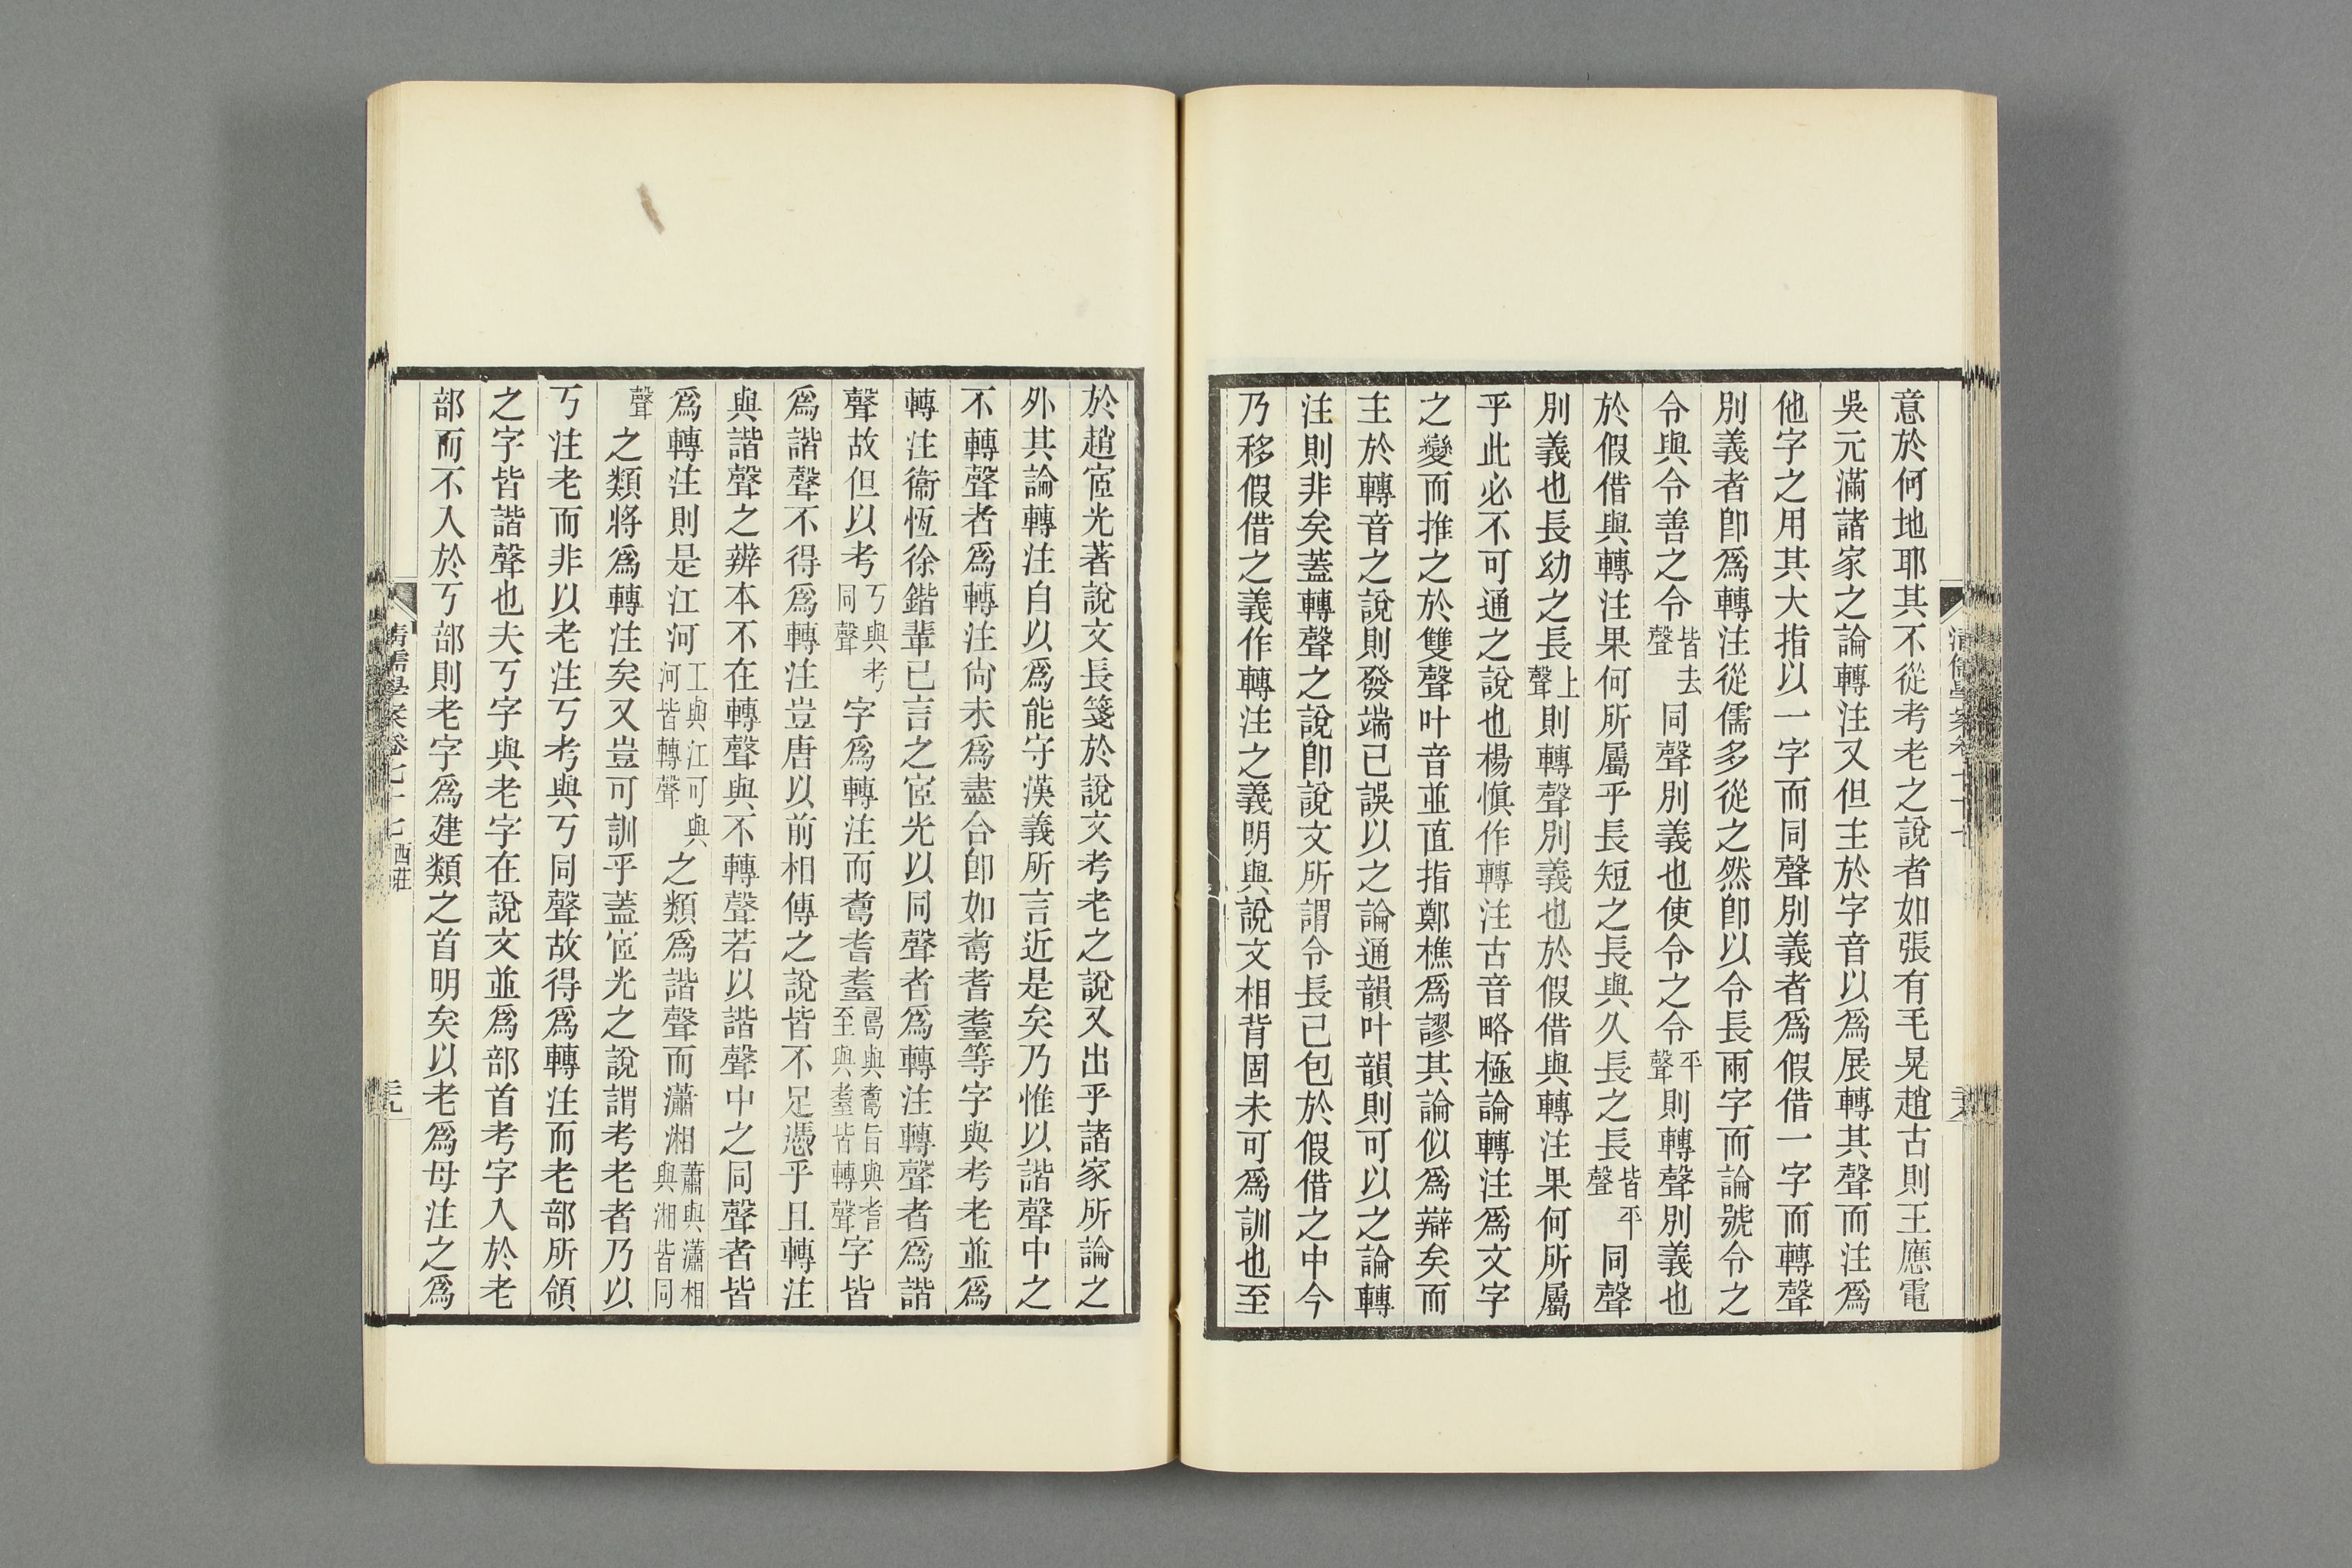 意於何地耶其不從考老之說者如張有毛晃趙古則王應電
吳元滿諸家之論轉注又但主於字音以為展轉其聲而注為
他字之用其大指以一字而同聲別義者為假借一字而轉聲
別義者卽為轉注從儒多從之然卽以令長兩字而論號令之
令與令善之令皆去聲同聲別義也使令之令平聲則轉聲別義也
於假借與轉注果何所屬乎長短之長與久長之長皆平聲同聲
別義也長幼之長上聲則轉聲別義也於假借與轉注果何所屬
乎此必不可通之說也楊愼作轉注古音略極論轉注為文字
之變而推之於雙聲叶音並直指鄭樵為謬其論似為辯矣而
主於轉音之說則發端已誤以之論通韻叶韻則可以之論轉
注則非矣蓋轉聲之說卽說文所謂令長已包於假借之中今
乃移假借之義作轉注之義明與說文相背固未可為訓也至
於趙宧光著說文長箋於說文考老之說又出乎諸家所論之
外其論轉注自以為能守漢義所言近是矣乃惟以諧聲中之
不轉聲者為轉注尙未為盡合卽如耇耆耋等字與考老並為
轉注衞恆徐鍇輩已言之宧光以同聲者為轉注轉聲者為諧
聲故但以考丂與考同聲字為轉注而耆耋與耆至與耋皆轉聲字皆
為諧聲不得為轉注豈唐以前相傳之說皆不足憑乎且轉注
與諧聲之辨本不在轉聲與不轉聲若以諧聲中之同聲者皆
為轉注則是江河工與江可與河皆轉聲之類為諧聲而瀟湘蕭與瀟相與湘皆同
聲之類將為轉注矣又豈可訓乎蓋宧光之說謂考老者乃以
丂注老而非以老注丂考與丂同聲故得為轉注而老部所領
之字皆諧聲也夫丂字與老字在說文並為部首考字入於老
部而不入於丂部則老字為建類之首明矣以老為母注之為
清儒學案卷七十七 西莊